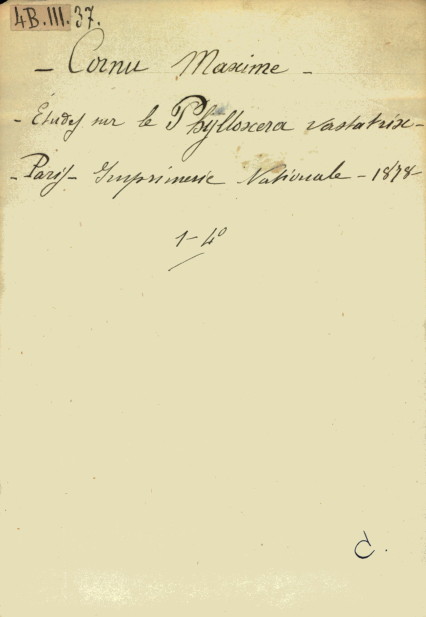 4B.III.37.
- Cornu Maxime -
- Études sur le Phylloxera vastatrix -
- Paris - Imprimerie Nationale - 1878
1 - 4°
C.